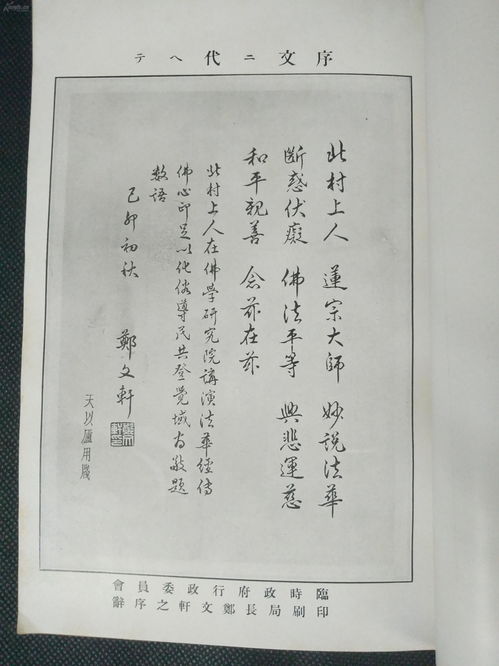 序文ニ代ヘテ
北村上人　蓮宗大師　妙説法華
斷惑伏癡　佛法平等　興悲運慈
和平親善　念茲在茲
北村上人在佛學研究院講演法華經傳
佛心印足以化俗導民共登覺域敬題
數語
己卯初秋
鄭文軒
天以廬用牋
臨時政府行政委員會
印刷局長鄭文軒之序辭